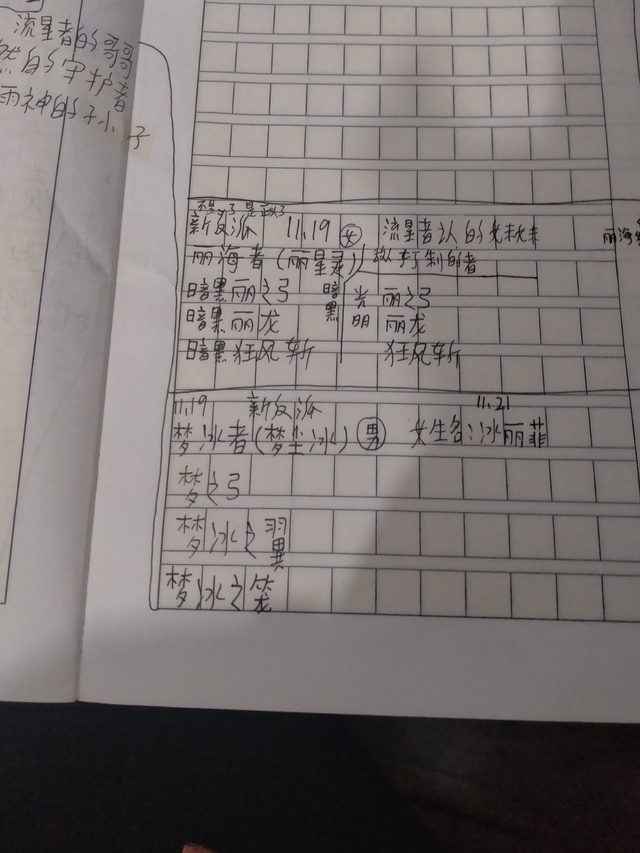 流星者的哥哥
然的守护者
雨神的子小子
是改了
新反派 11.19 女 流星者认的
丽海者(丽星灵) 打制的者
丽海
暗黑丽之弓 暗黑 光明 丽之弓
暗黑丽龙 丽龙
暗黑狂风斩 狂风斩
11.19 新反派 11.21
梦冰者(梦尘冰) 男 女生名:冰丽菲
梦之弓
梦冰之翼
梦冰之笼